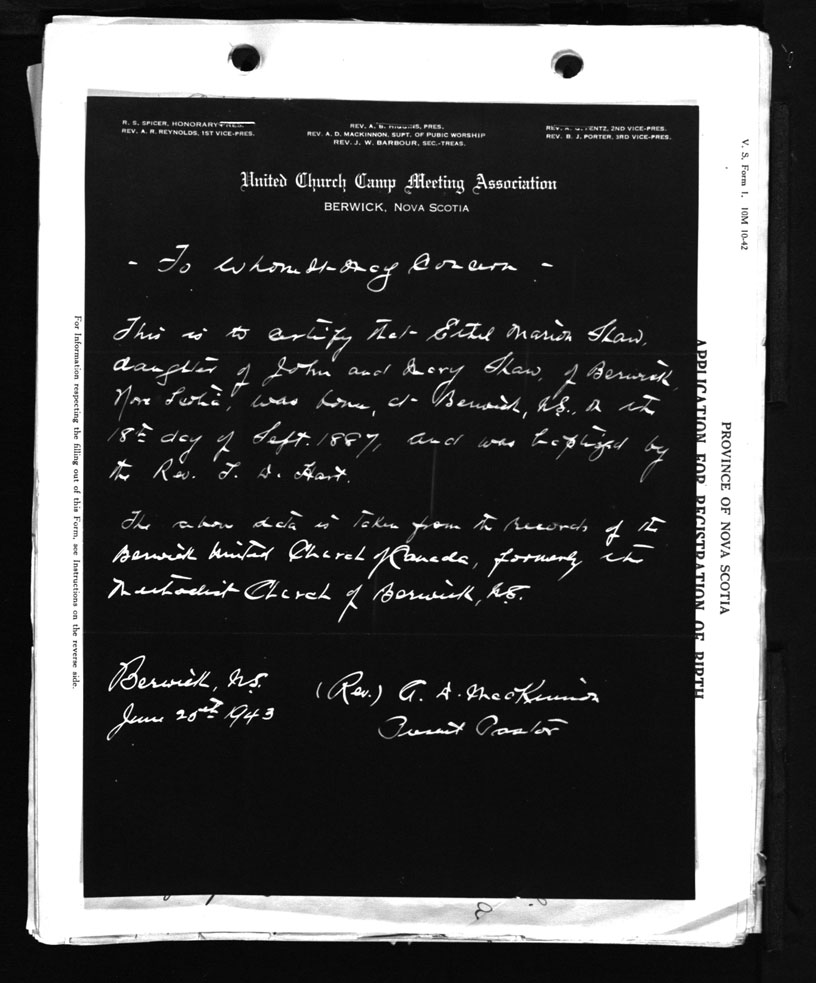 R. S. SPICER, HONORARY PRES.
REV. A. R. REYNOLDS, 1ST VICE-PRES.
REV. A. B. HIGGINS, PRES.
REV. A. D. MACKINNON, SUPT. OF PUBIC WORSHIP
REV. J. W. BARBOUR, SEC.-TREAS.
REV. A. G. 2ND VICE-PRES.
REV. B. J. PORTER, 3RD VICE-PRES.
United Church Camp Meeting Association
BERWICK, NOVA SCOTIA
- To Whom It May Concern -
This is to certify that Ethel Marion Shaw,
daughter of John and Mary Shaw, of Berwick,
Nova Scotia, was born, at Berwick, N.S., on the
18th day of Sept. 1887, and was baptized by
the Rev. T. D. Hart.
The above data is taken from the records of the
Berwick United Church of Canada, formerly the
Methodist Church of Berwick, N.S.
Berwick, N.S.
June 25th 1943
(Rev.) A. D. MacKinnon
Present Pastor
V. S. Form 1. 10M 10-42
PROVINCE OF NOVA SCOTIA
APPLICATION FOR REGISTRATION OF BIRTH
For Information respecting the filling out of this Form, see Instructions on the reverse side.